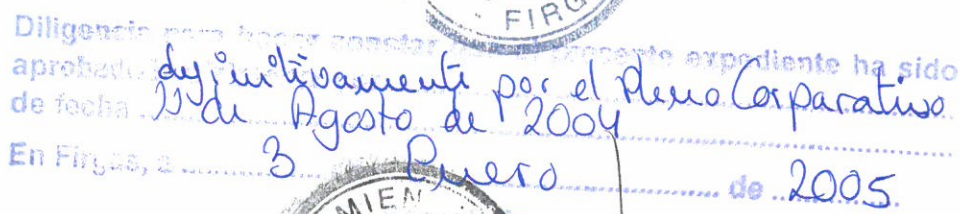 FIRGAS
Diligencia para hacer constar que el presente expediente ha sido
aprobado definitivamente por el Pleno Corporativo
de fecha de Agosto de 2004
En Firgas, a 3 Enero de 2005
MIEN